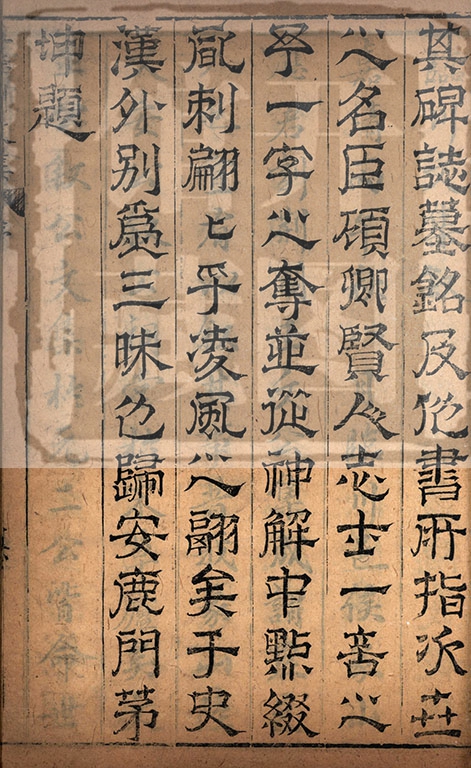 其碑誌墓銘及他書所指次世
之名臣碩卿賢人志士一言之
予一字之奪並從神解中點綴
凮刺翩匕乎凌風之翮矣于史
漢外别爲三昧也歸安鹿門茅
坤題